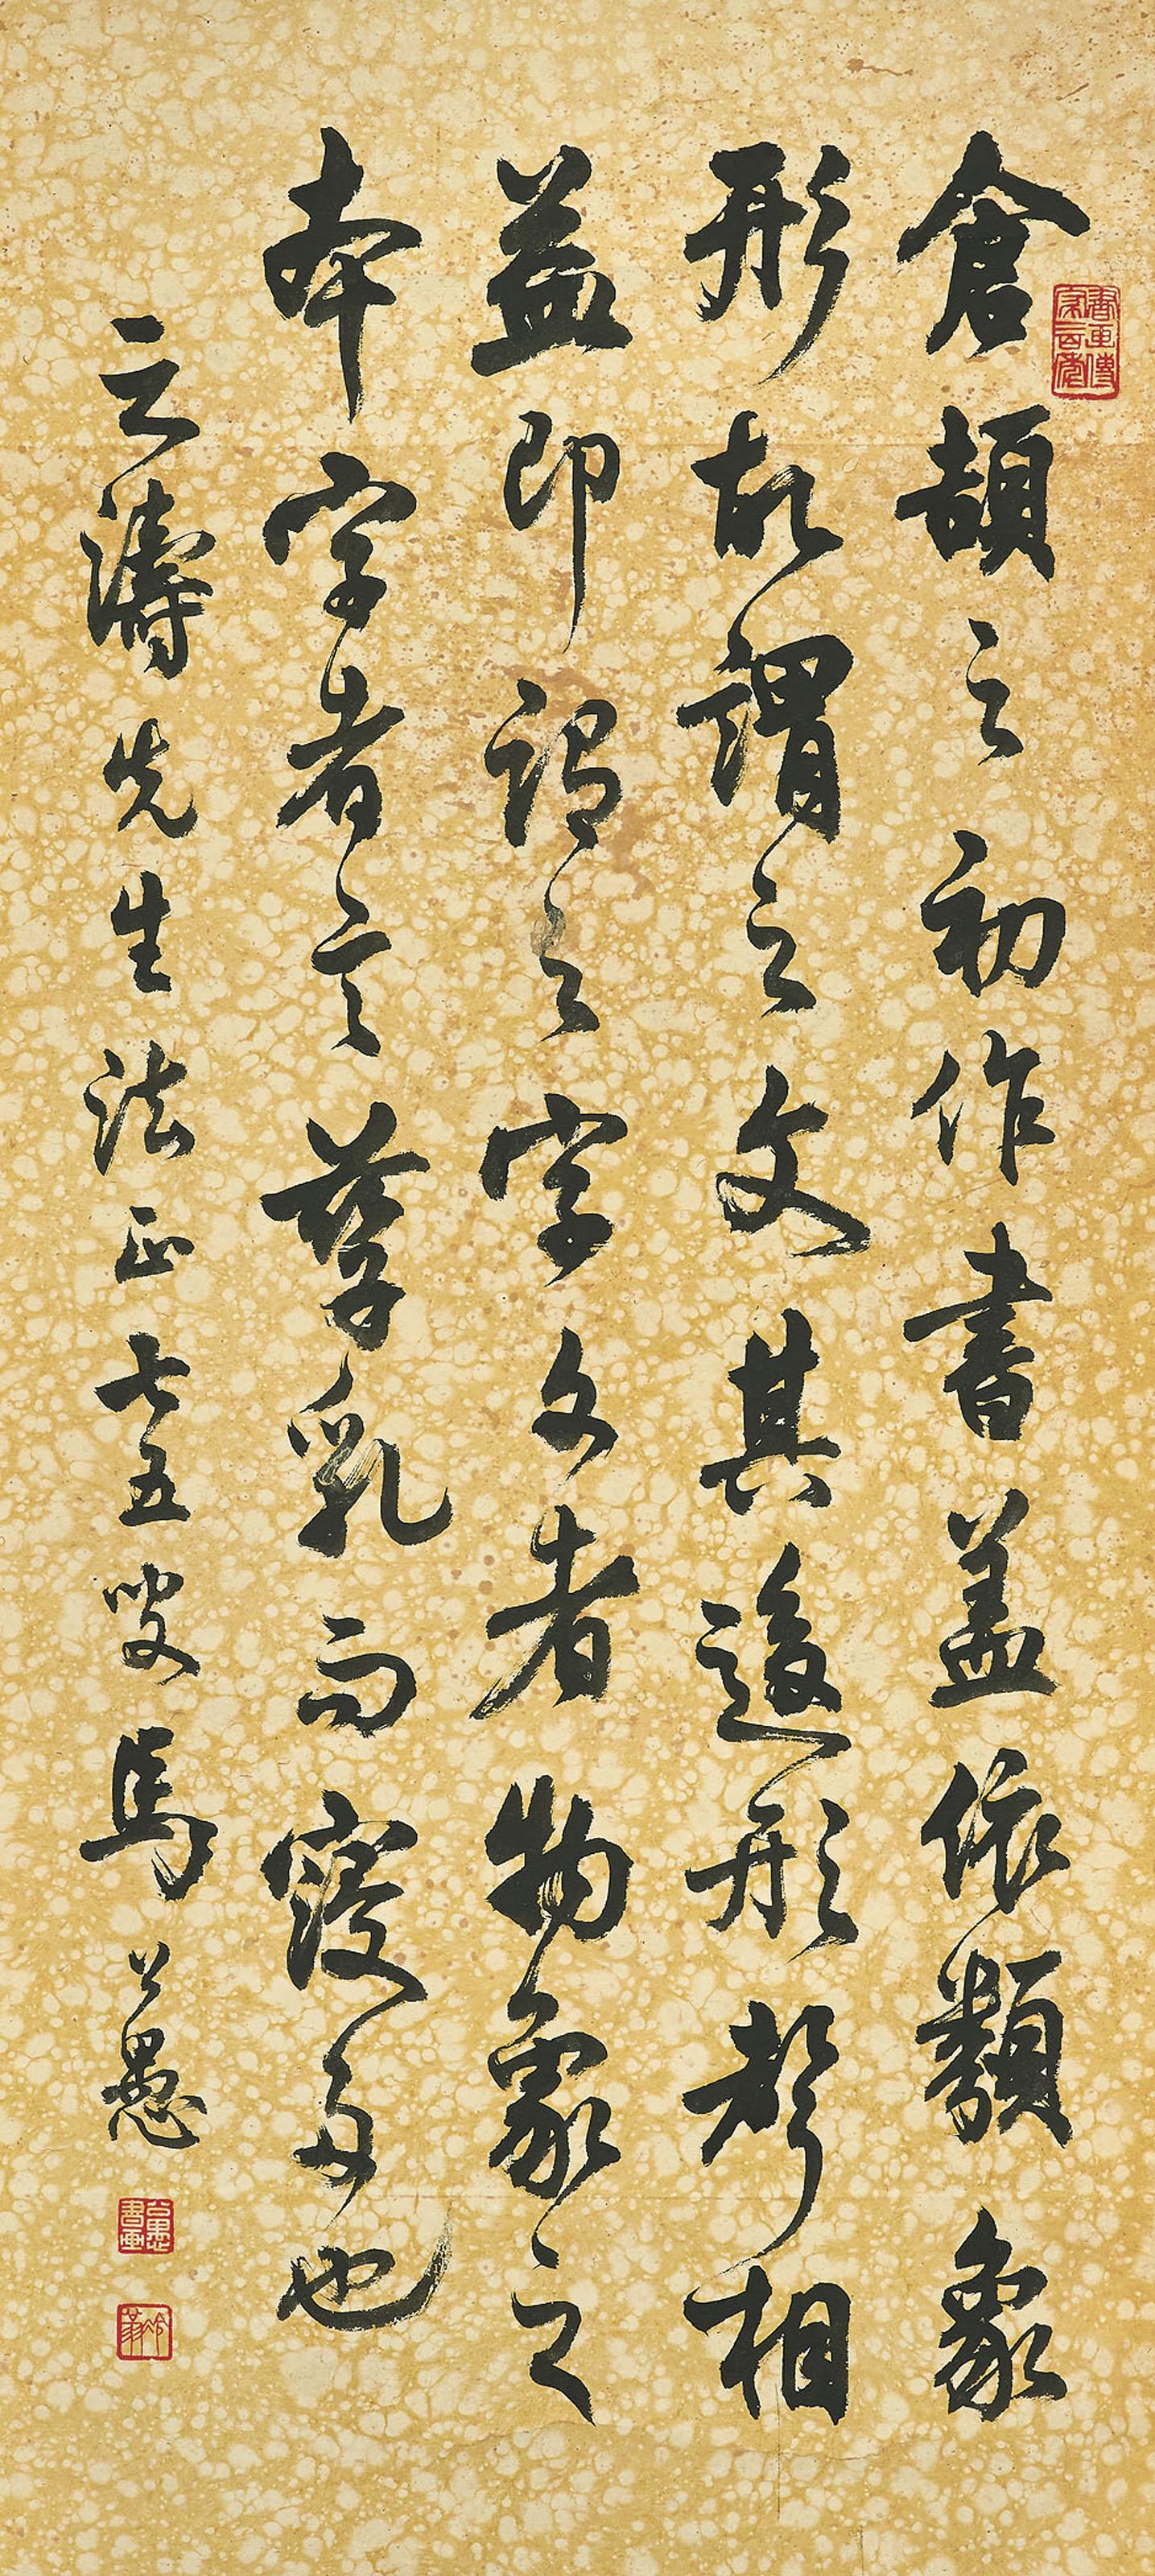 倉頡之初作書蓋依類象
形故謂之文其後形聲相
益即謂之字文者物象之
本字者言孳乳而寖多也
云濤先生法正七五叟馬公愚
書畫傳家百年
公愚書畫